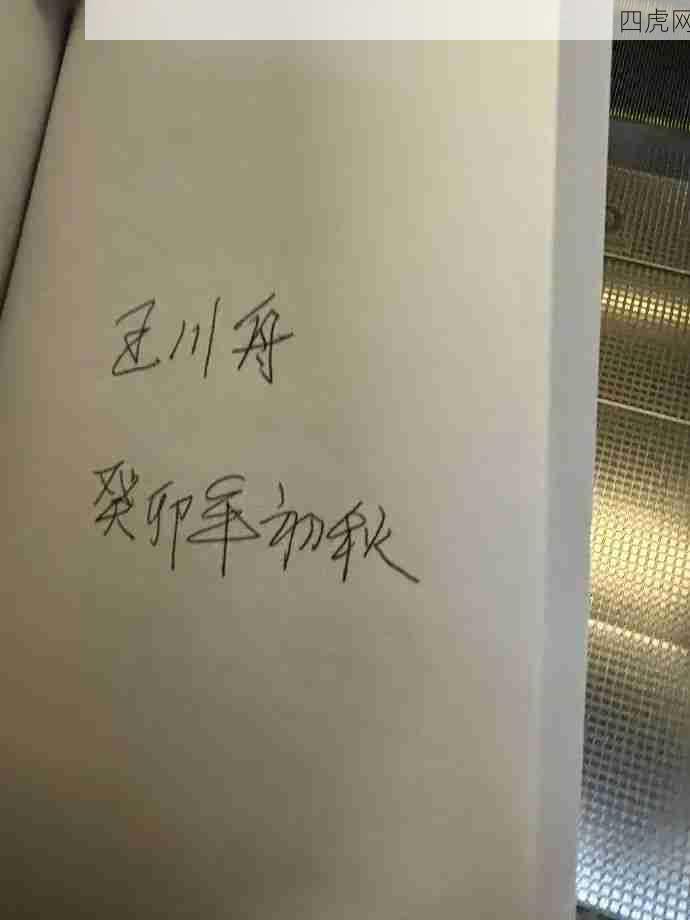 四虎网
王川舟
癸卯年初秋